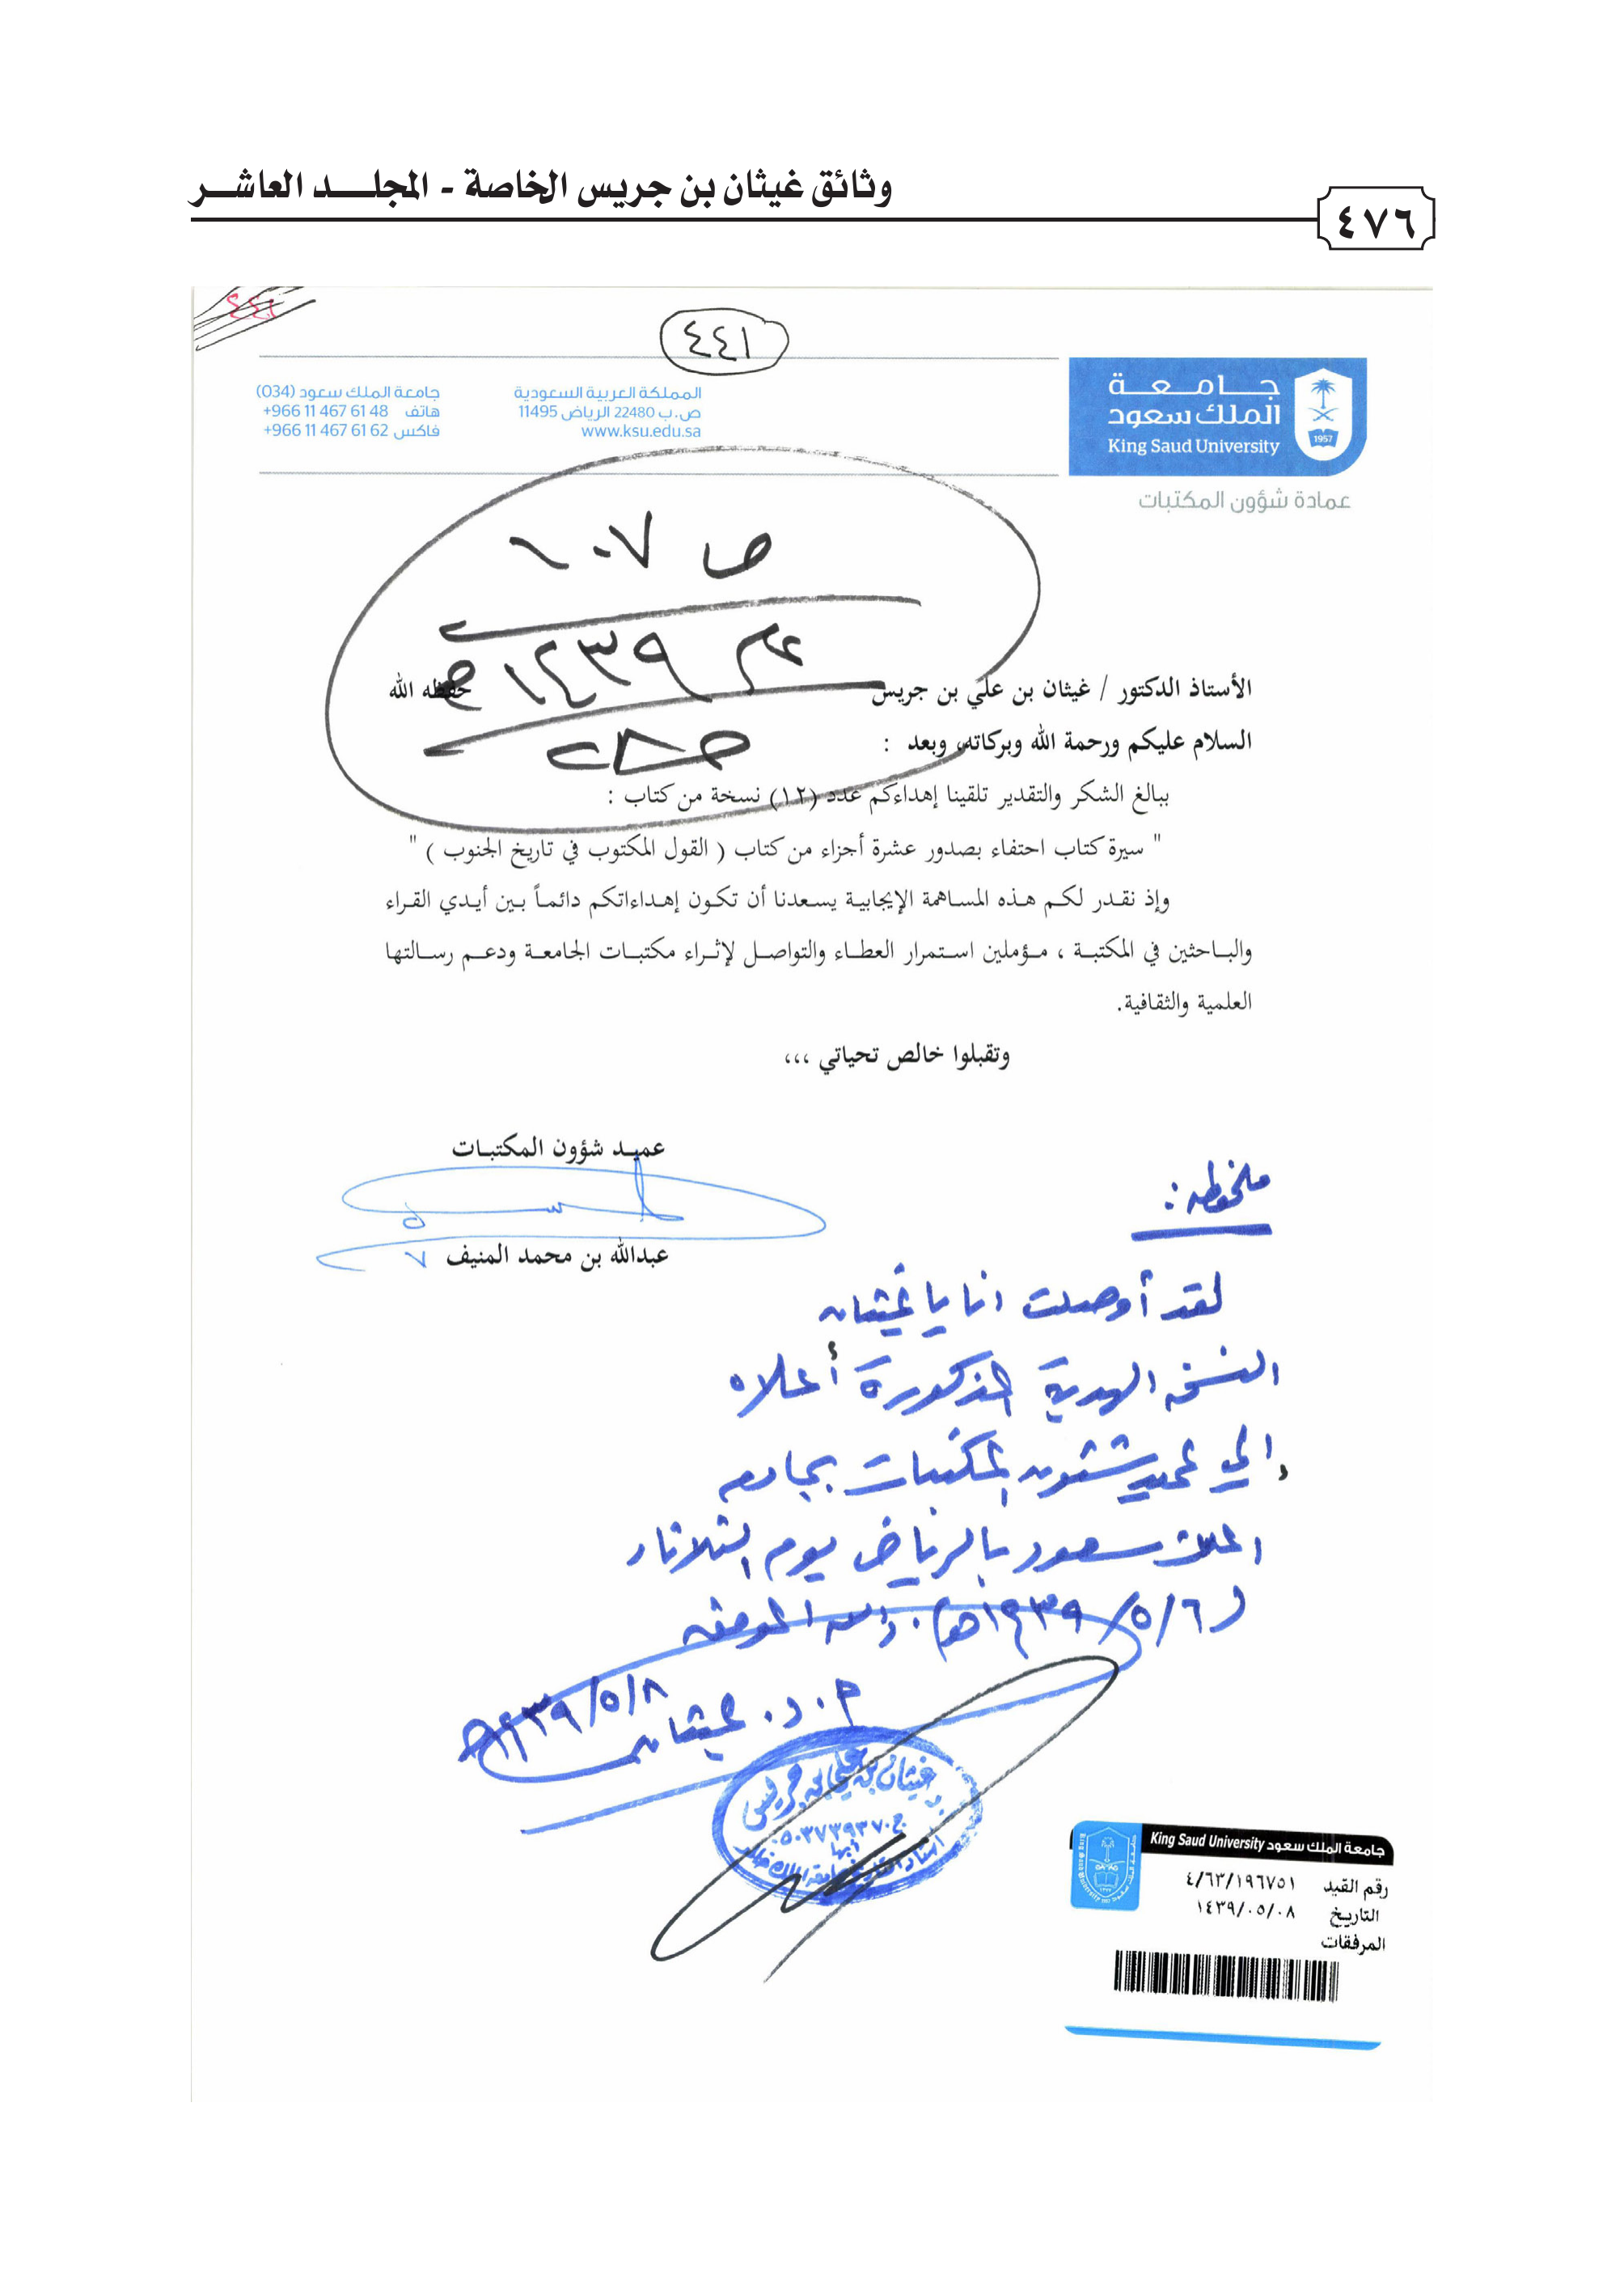 وثائق غيثان بن جريس الخاصة - المجلد العاشر
٤٧٦
٤٤١
جامعة
الملك سعود
King Saud University
1957
عمادة شؤون المكتبات
المملكة العربية السعودية
ص.ب 22480 الرياض 11495
www.ksu.edu.sa
جامعة الملك سعود (034)
هاتف +966 11 467 61 48
فاكس +966 11 467 61 62
ص ١٠٧
عام ١٤٣٩هـ
الأستاذ الدكتور / غيثان بن علي بن جريس حفظه الله
السلام عليكم ورحمة الله وبركاته، وبعد :
ببالغ الشكر والتقدير تلقينا إهداءكم عدد (١٢) نسخة من كتاب :
" سيرة كتاب احتفاء بصدور عشرة أجزاء من كتاب ( القول المكتوب في تاريخ الجنوب ) "
وإذ نقدر لكم هذه المساهمة الإيجابية يسعدنا أن تكون إهداءاتكم دائماً بين أيدي القراء
والباحثين في المكتبة ، مؤملين استمرار العطاء والتواصل لإثراء مكتبات الجامعة ودعم رسالتها
العلمية والثقافية.
وتقبلوا خالص تحياتي ،،،
عميد شؤون المكتبات
عبدالله بن محمد المنيف
ملحوظه :
لقد أوصلت انا يا غيثان
النسخ الهدية المذكورة أعلاه
إلي عميد شئون المكتبات بجامعه
الملك سعود بالرياض يوم الثلاثاء
(٦/٥/١٤٣٩هـ). والله الموفق
أ.د. غيثان
٨/٥/١٤٣٩هـ
غيثان بن علي بن جريس
ج ٠٥٠٣٧٣٩٣٧٠
أبها
جامعة الملك سعود King Saud University
رقم القيد ٤/٦٣/١٩٦٧٥١
التاريخ ١٤٣٩/٠٥/٠٨
المرفقات